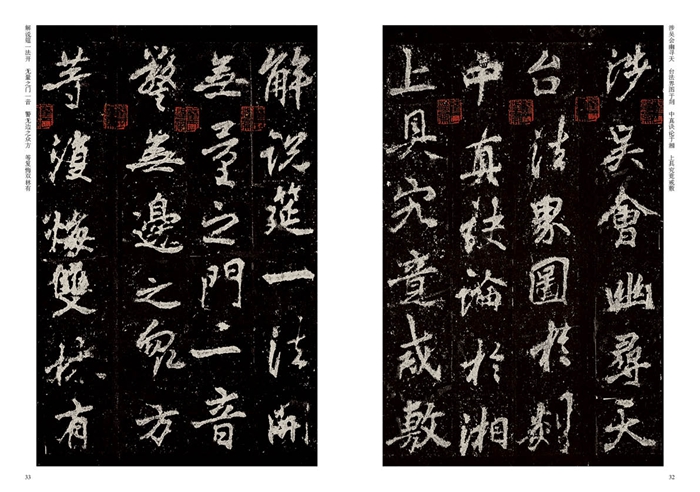 涉吴会幽寻天 台法界图于剡 中真诀论于湘 上具究竟成敷
涉吳會幽尋天
台法界圖於剡
中真訣論於湘
上具究竟成敷
32
解说筵一法开 无量之门一音 警无边之众方 等复悔双林有
解說筵一法開
無量之門一音
警無邊之眾方
等復悔雙林有
33